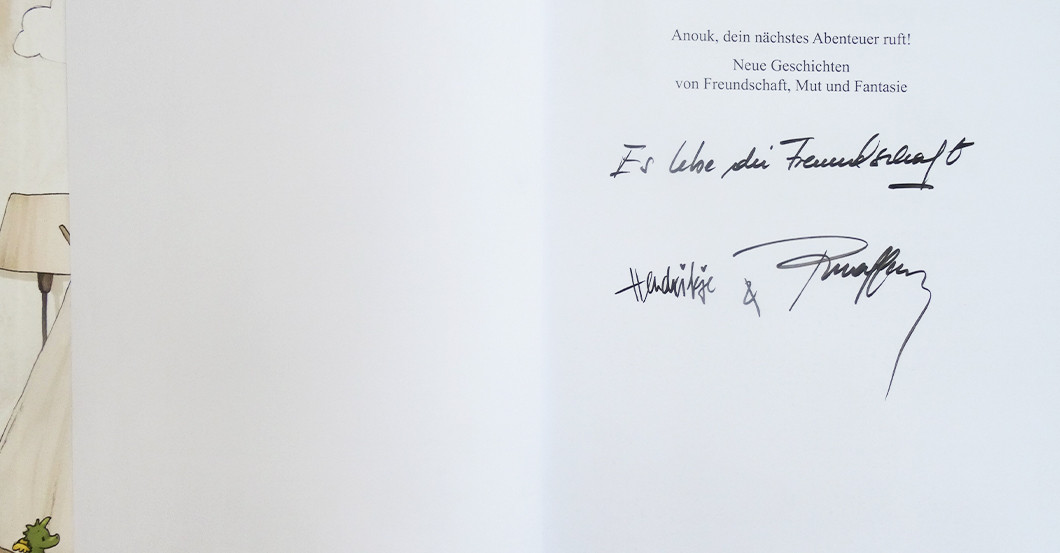 Anouk, dein nächstes Abenteuer ruft!
Neue Geschichten
von Freundschaft, Mut und Fantasie
Es lebe die Freundschaft
Hendrikje &